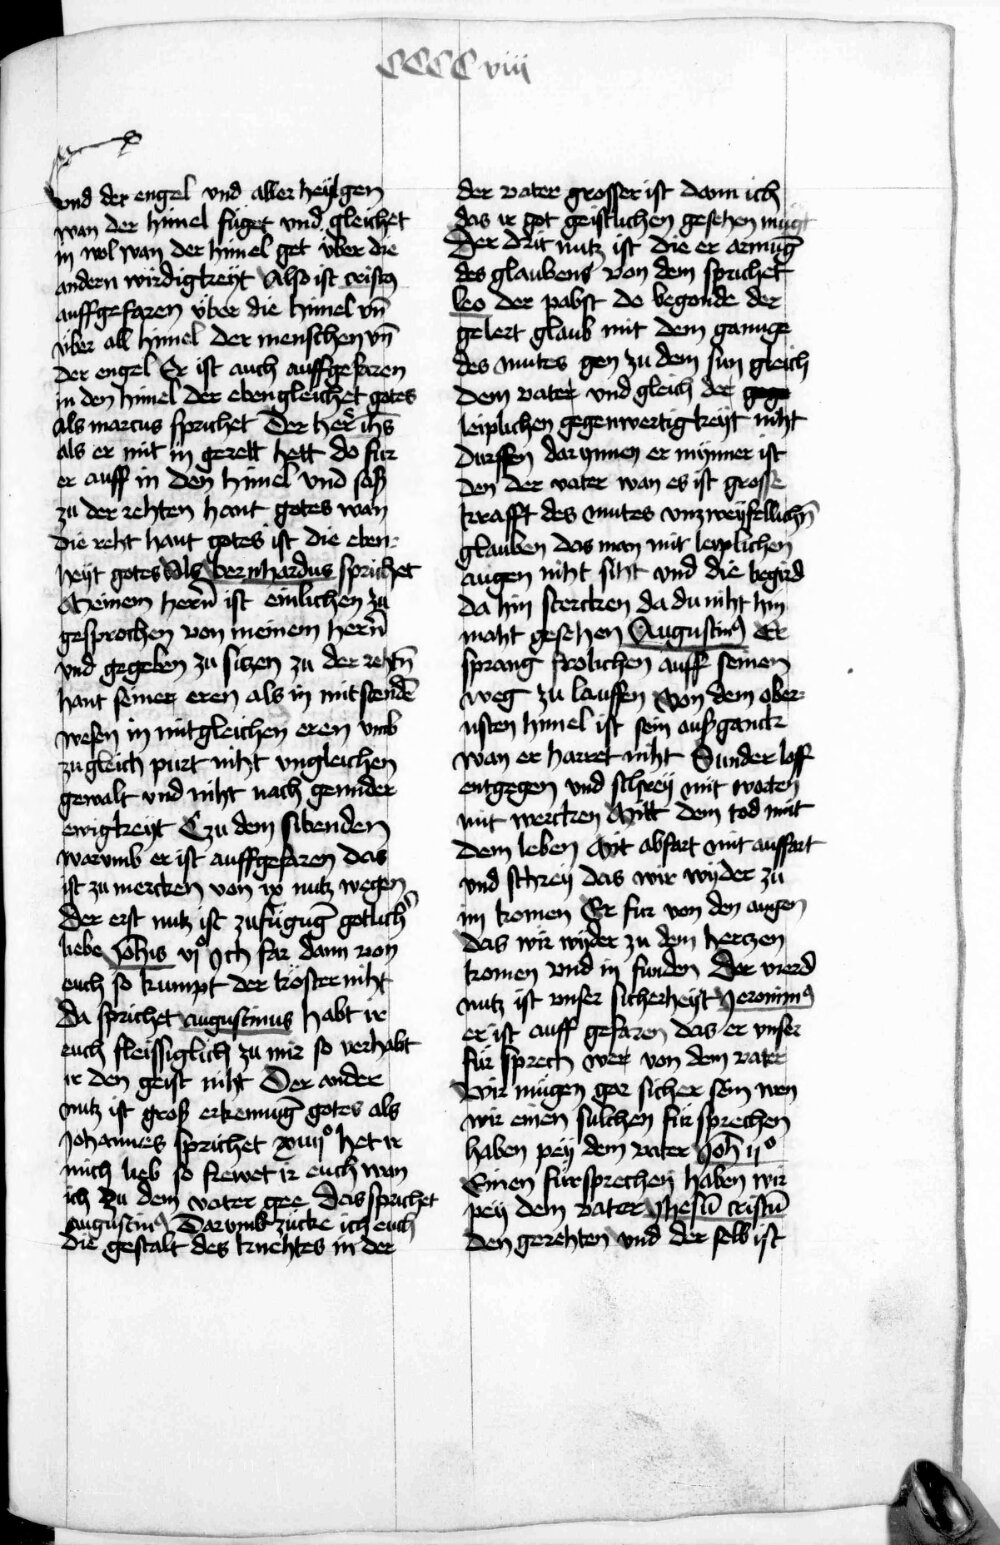 CCCC viii
vnd der engel vnd aller heyligen
wan der himel füget vnd gleichet
in wol wan der himel get über die
andern wirdigkeyt Also ist cristus
auffgefaren über die himel vn̄
über all himel der menschen vn̄
der engel Er ist auch auffgefaren
in den himel der ebengleichet gotes
als marcus sprichet Der her ih̄s
als er mit in gerett hett do fur
er auff in den himel vnd saß
zu der rehten hant gotes wan
die reht hant gotes ist die eben-
heyt gotes Als bernhardus sprichet
Meinem hern̄ ist einlichen zu
gesprochen von meinem hern̄
vnd gegeben zu siczen zu der rehtn̄
hant seiner eren als in mitstendē
wesen in mitgleichen eren vmb
zugleich purt niht vngleichen
gewalt vnd niht nach gemider
ewigkeyt Czu dem sibenden
warumb er ist auffgefaren das
ist zu mercken von ix nutz wegen
Der erst nutz ist zufügūg gotlichn̄
liebe Joh̄is vjº Ich far dann von
euch so kumpt der tröster niht
Da sprichet augustinus habt ir
euch fleissiglich zu mir so verhabt
ir den geist niht Der ander
nutz ist groß erkennūg gotes als
Johannes sprichet xiiijº Het ir
mich lieb so frewet ir euch wan
ich zu dem vater gee Das sprichet
augustin⁹ Darumb zucke ich euch
die gestalt des knehtes in der
der vater grosser ist dann ich
das ir got geistlichen gesehen mügt
Der drit nutz ist die er armūg
des glaubens von dem sprichet
leo der pabst do begonde der
gelert glaub mit dem gannge
des mutes gen zu dem sun gleich
dem vater vnd gleich der
leiplichen gegenwertigkeyt niht
durffen darynnen er mynner ist
den der vater wan es ist grosse
krafft des mutes vnzweyfellichn̄
glauben das man mit leiplichen
augen niht siht vnd die begird
da hin stercken da du niht hin
maht gesehen Augustin⁹ Er
sprang frolichen auff seinen
weg zu lauffen von dem ober-
nsten himel ist sein außganck
wan er harret niht Sunder loff
entgegen vnd schrey mit worten
mit wercken Mitt dem tod mit
dem leben Mit abfart mit auffart
vnd schrey das wir wyder zu
im komen Er fur von den augen
das wir wyder zu dem herczen
komen vnd in funden Der vierd
nutz ist vnser sicherheyt Jeronim⁹
er ist auff gefaren das er vnser
für sprech wer von dem vater
Wir mügen gar sicher sein wen
wir einen sulchen für sprechen
haben pey dem vater Joh̄ ijº
Einen fürsprechen haben wir
pey dem vater Ihesū cristū
den gerehten vnd der selb ist